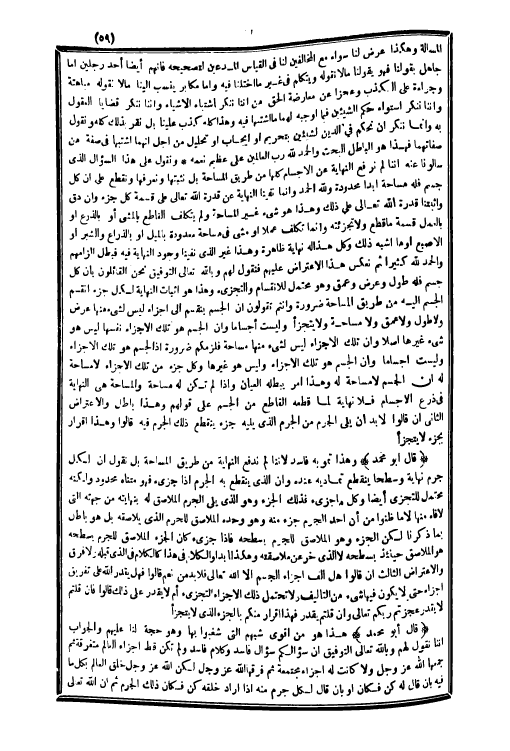 (٥٩)
المسألة وهكذا عرض لنا سواء مع المخالفين لنا في القياس المدعين لتصحيحه فانهم أيضا أحد رجلين اما
جاهل بقولنا فهو يقولنا مالا نقوله ويتكلم في غير ما اختلفنا فيه واما مكابر ينسب الينا مالا نقوله مباهتة
وجراءة على الكذب وعجزا عن معارضة الحق من اننا ننكر اشتباه الاشياء واننا ننكر قضايا العقول
واننا ننكر استواء حكم الشيئين فيما اوجبه لهما ما اشتبها فيه وهذا كله كذب علينا بل نقر بذلك كله ونقول
به وانما ننكر ان نحكم في الدين لشيئين بتحريم او ايجاب او تحليل من أجل انهما اشتبها في صفة من
صفاتهما فهذا هو الباطل البحت والحمد لله رب العالمين على عظيم نعمه ❁ ونقول على هذا السؤال الذي
سألونا عنه اننا لم نرفع النهاية عن الاجسام كلها من طريق المساحة بل نثبتها ونعرفها ونقطع على ان كل
جسم فله مساحة ابدا محدودة ولله الحمد وانما نفينا النهاية عن قدرة الله تعالى على قسمة كل جزء وان دق
واثبتنا قدرة الله تعالى على ذلك وهذا هو شيء غير المساحة ولم يتكلف القاطع بالمشي أو بالذرع او
بالعمل قسمة ما قطع ولا تجزئته وانما تكلف عملا او مشى في مساحة معدودة بالميل او بالذراع والشبر او
الاصبع او ما اشبه ذلك وكل هذا له نهاية ظاهرة وهذا غير الذي نفينا وجود النهاية فيه فبطل الزامهم
والحمد لله كثيرا ثم نعكس هذا الاعتراض عليهم فنقول لهم وبالله تعالى التوفيق نحن القائلون بان كل
جسم فله طول وعرض وعمق وهو محتمل للانقسام والتجزي وهذا هو اثبات النهاية لكل جزء انقسم
الجسم اليه من طريق المساحة ضرورة وانتم تقولون ان الجسم ينقسم الى اجزاء ليس لشيء منها عرض
ولا طول ولا عمق ولا مساحة ولا يتجزأ وليست أجساما وان الجسم هو تلك الاجزاء نفسها ليس هو
شيء غيرها اصلا وان تلك الاجزاء ليس لشيء منها مساحة فلزمكم ضرورة اذ الجسم هو تلك الاجزاء
وليست اجساما وان الجسم هو تلك الاجزاء وليس هو غيرها وكل جزء من تلك الاجزاء لا مساحة
له ان الجسم لا مساحة له وهذا امر يبطله العيان واذا لم تكن له مساحة والمساحة هي النهاية
في ذرع الاجسام فلا نهاية لما قطعه القاطع من الجسم على قولهم وهذا باطل والاعتراض
الثاني ان قالوا لابد ان يلي الجرم من الجرم الذي يليه جزء ينقطع ذلك الجرم فيه قالوا وهذا اقرار
بجزء لا يتجزأ
﴿ قال ابو محمد ﴾ وهذا تمويه فاسد لاننا لم ندفع النهاية من طريق المساحة بل نقول ان لكل
جرم نهاية وسطحا ينقطع تماديه عنده وان الذي ينقطع به الجرم اذا جزيء فهو متناه محدود ولكنه
محتمل للتجزي أيضا وكل ما جزيء فذلك الجزء وهو الذي يلي الجرم الملاصق له بنهايته من جهته التي
لاقاه منها لا ما ظنوا من أن احد الجرم جزء منه وهو وحده الملاصق للجرم الذي يلاصقه بل هو باطل
بما ذكرنا لكن الجزء وهو الملاصق للجرم بسطحه فاذا جزيء كان الجزء الملاصق للجرم بسطحه
هو الملاصق حينئذ بسطحه لا الذي خر عن ملاصقته وهكذا ابدا والكلام في هذا كالكلام في الذي قبله لا فرق
والاعتراض الثالث ان قالوا هل الف اجزاء الجسم الا الله تعالى فلابد من نعم قالوا فهل يقدر الله على تفريق
اجزاءه حتى لا يكون فيها شيء من التأليف ولا تحتمل تلك الاجزاء التجزيء أم لا يقدر على ذلك قالوا فان قلتم
لا يقدر عجزتم ربكم تعالى وان قلتم يقدر فهذا اقرار منكم بالجزء الذي لا يتجزأ
﴿ قال أبو محمد ﴾ هذا هو من أقوى شبههم التي شغبوا بها وهو حجة لنا عليهم والجواب
اننا نقول لهم وبالله تعالى التوفيق ان سؤالكم سؤال فاسد وكلام فاسد ولم تكن قط اجزاء العالم متفرقة ثم
جمعها الله عز وجل ولا كانت له اجزاء مجتمعة ثم فرقها الله عز وجل لكن الله عز وجل خلق العالم بكل ما
فيه بان قال له كن فكان او بان قال لكل جرم منه اذا اراد خلقه كن فكان ذلك الجرم ثم ان الله تعالى